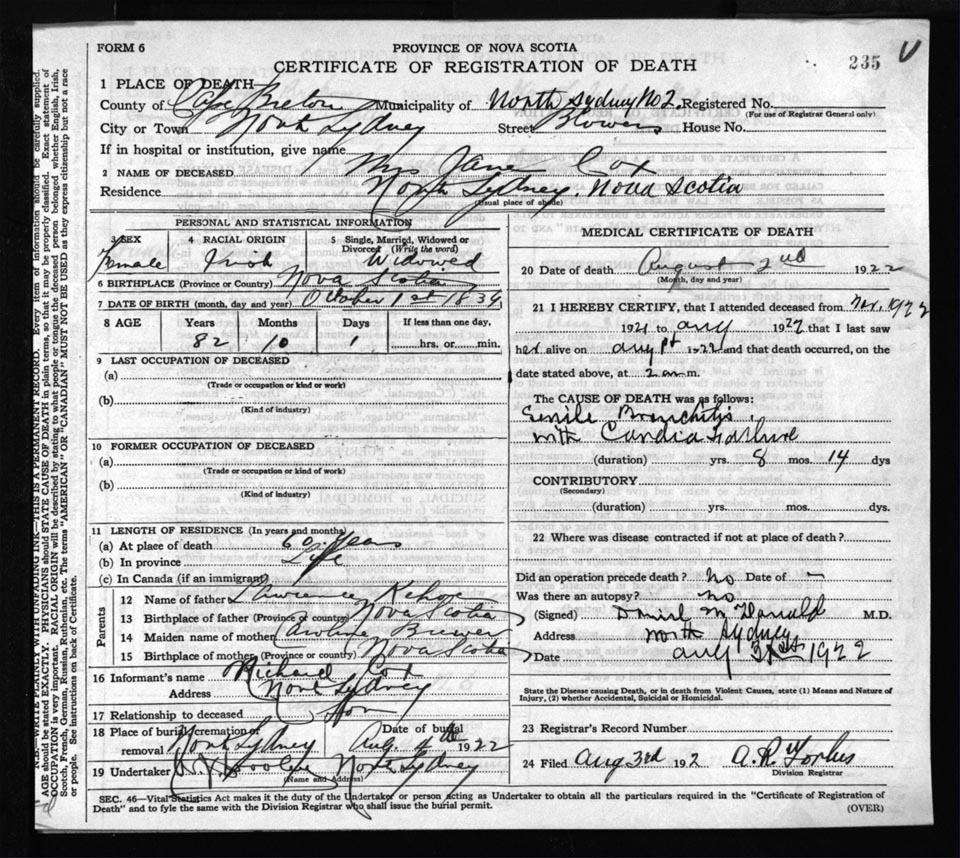 FORM 6
PROVINCE OF NOVA SCOTIA
CERTIFICATE OF REGISTRATION OF DEATH
235
1 PLACE OF DEATH
County of Cape Breton Municipality of North Sydney No 2 Registered No.
(For use of Registrar General only)
City or Town North Sydney Street Blowers House No.
If in hospital or institution, give name
2 NAME OF DECEASED Mrs Jane Cox
Residence North Sydney, Nova Scotia
(Usual place of abode)
PERSONAL AND STATISTICAL INFORMATION
3 SEX 4 RACIAL ORIGIN 5 Single, Married, Widowed or Divorced (Write the word)
Female Irish Widowed
6 BIRTHPLACE (Province or Country) Nova Scotia
7 DATE OF BIRTH (month, day and year) October 1st 1839
8 AGE Years Months Days If less than one day,
82 10 1 hrs. or min.
9 LAST OCCUPATION OF DECEASED
(a)
(Trade or occupation or kind or work)
(b)
(Kind of industry)
10 FORMER OCCUPATION OF DECEASED
(a)
(Trade or occupation or kind of work)
(b)
(Kind of industry)
11 LENGTH OF RESIDENCE (In years and months)
(a) At place of death 60 years
(b) In province Life
(c) In Canada (if an immigrant)
Parents
12 Name of father Lawrence Kehoe
13 Birthplace of father (Province or country) Nova Scotia
14 Maiden name of mother Caroline Brewer
15 Birthplace of mother (Province or country) Nova Scotia
16 Informant's name Richard Cox
Address North Sydney
17 Relationship to deceased Son
18 Place of burial, cremation or removal North Sydney Date of burial Aug. 4th 1922
19 Undertaker North Sydney
(Name and Address)
MEDICAL CERTIFICATE OF DEATH
20 Date of death August 2nd 1922
(Month, day and year)
21 I HEREBY CERTIFY, that I attended deceased from Nov.
1921 to Aug 1922 that I last saw
her alive on Aug 1st 1922 and that death occurred, on the
date stated above, at 2 a.m.
The CAUSE OF DEATH was as follows:
Senile Bronchitis
with Cardia Failure
(duration) yrs. 8 mos. 14 dys
CONTRIBUTORY
(Secondary)
(duration) yrs. mos. dys
22 Where was disease contracted if not at place of death?
Did an operation precede death? No Date of —
Was there an autopsy? No
(Signed) Daniel McDonald M.D.
Address North Sydney
Date Aug 1922
State the Disease causing Death, or in death from Violent Causes, state (1) Means and Nature of
Injury, (2) whether Accidental, Suicidal or Homicidal.
23 Registrar's Record Number
24 Filed Aug 3rd 192 A. R. Forbes
Division Registrar
SEC. 46—Vital Statistics Act makes it the duty of the Undertaker or person acting as Undertaker to obtain all the particulars required in the "Certificate of Registration of
Death" and to fyle the same with the Division Registrar who shall issue the burial permit.
(OVER)
N.B.—WRITE PLAINLY WITH UNFADING INK—THIS IS A PERMANENT RECORD. Every item of information should be carefully supplied.
AGE should be stated EXACTLY. PHYSICIANS should STATE CAUSE OF DEATH in plain terms, so that it may be properly classified. Exact statement of
OCCUPATION is very important. RACIAL ORIGIN will be described by stating to what people or tongue the deceased person belonged whether English, Irish,
Scotch, French, German, Russian, Ruthenian, etc. The terms "AMERICAN" OR "CANADIAN" MUST NOT BE USED as they express citizenship but not a race
or people. See instructions on back of Certificate.